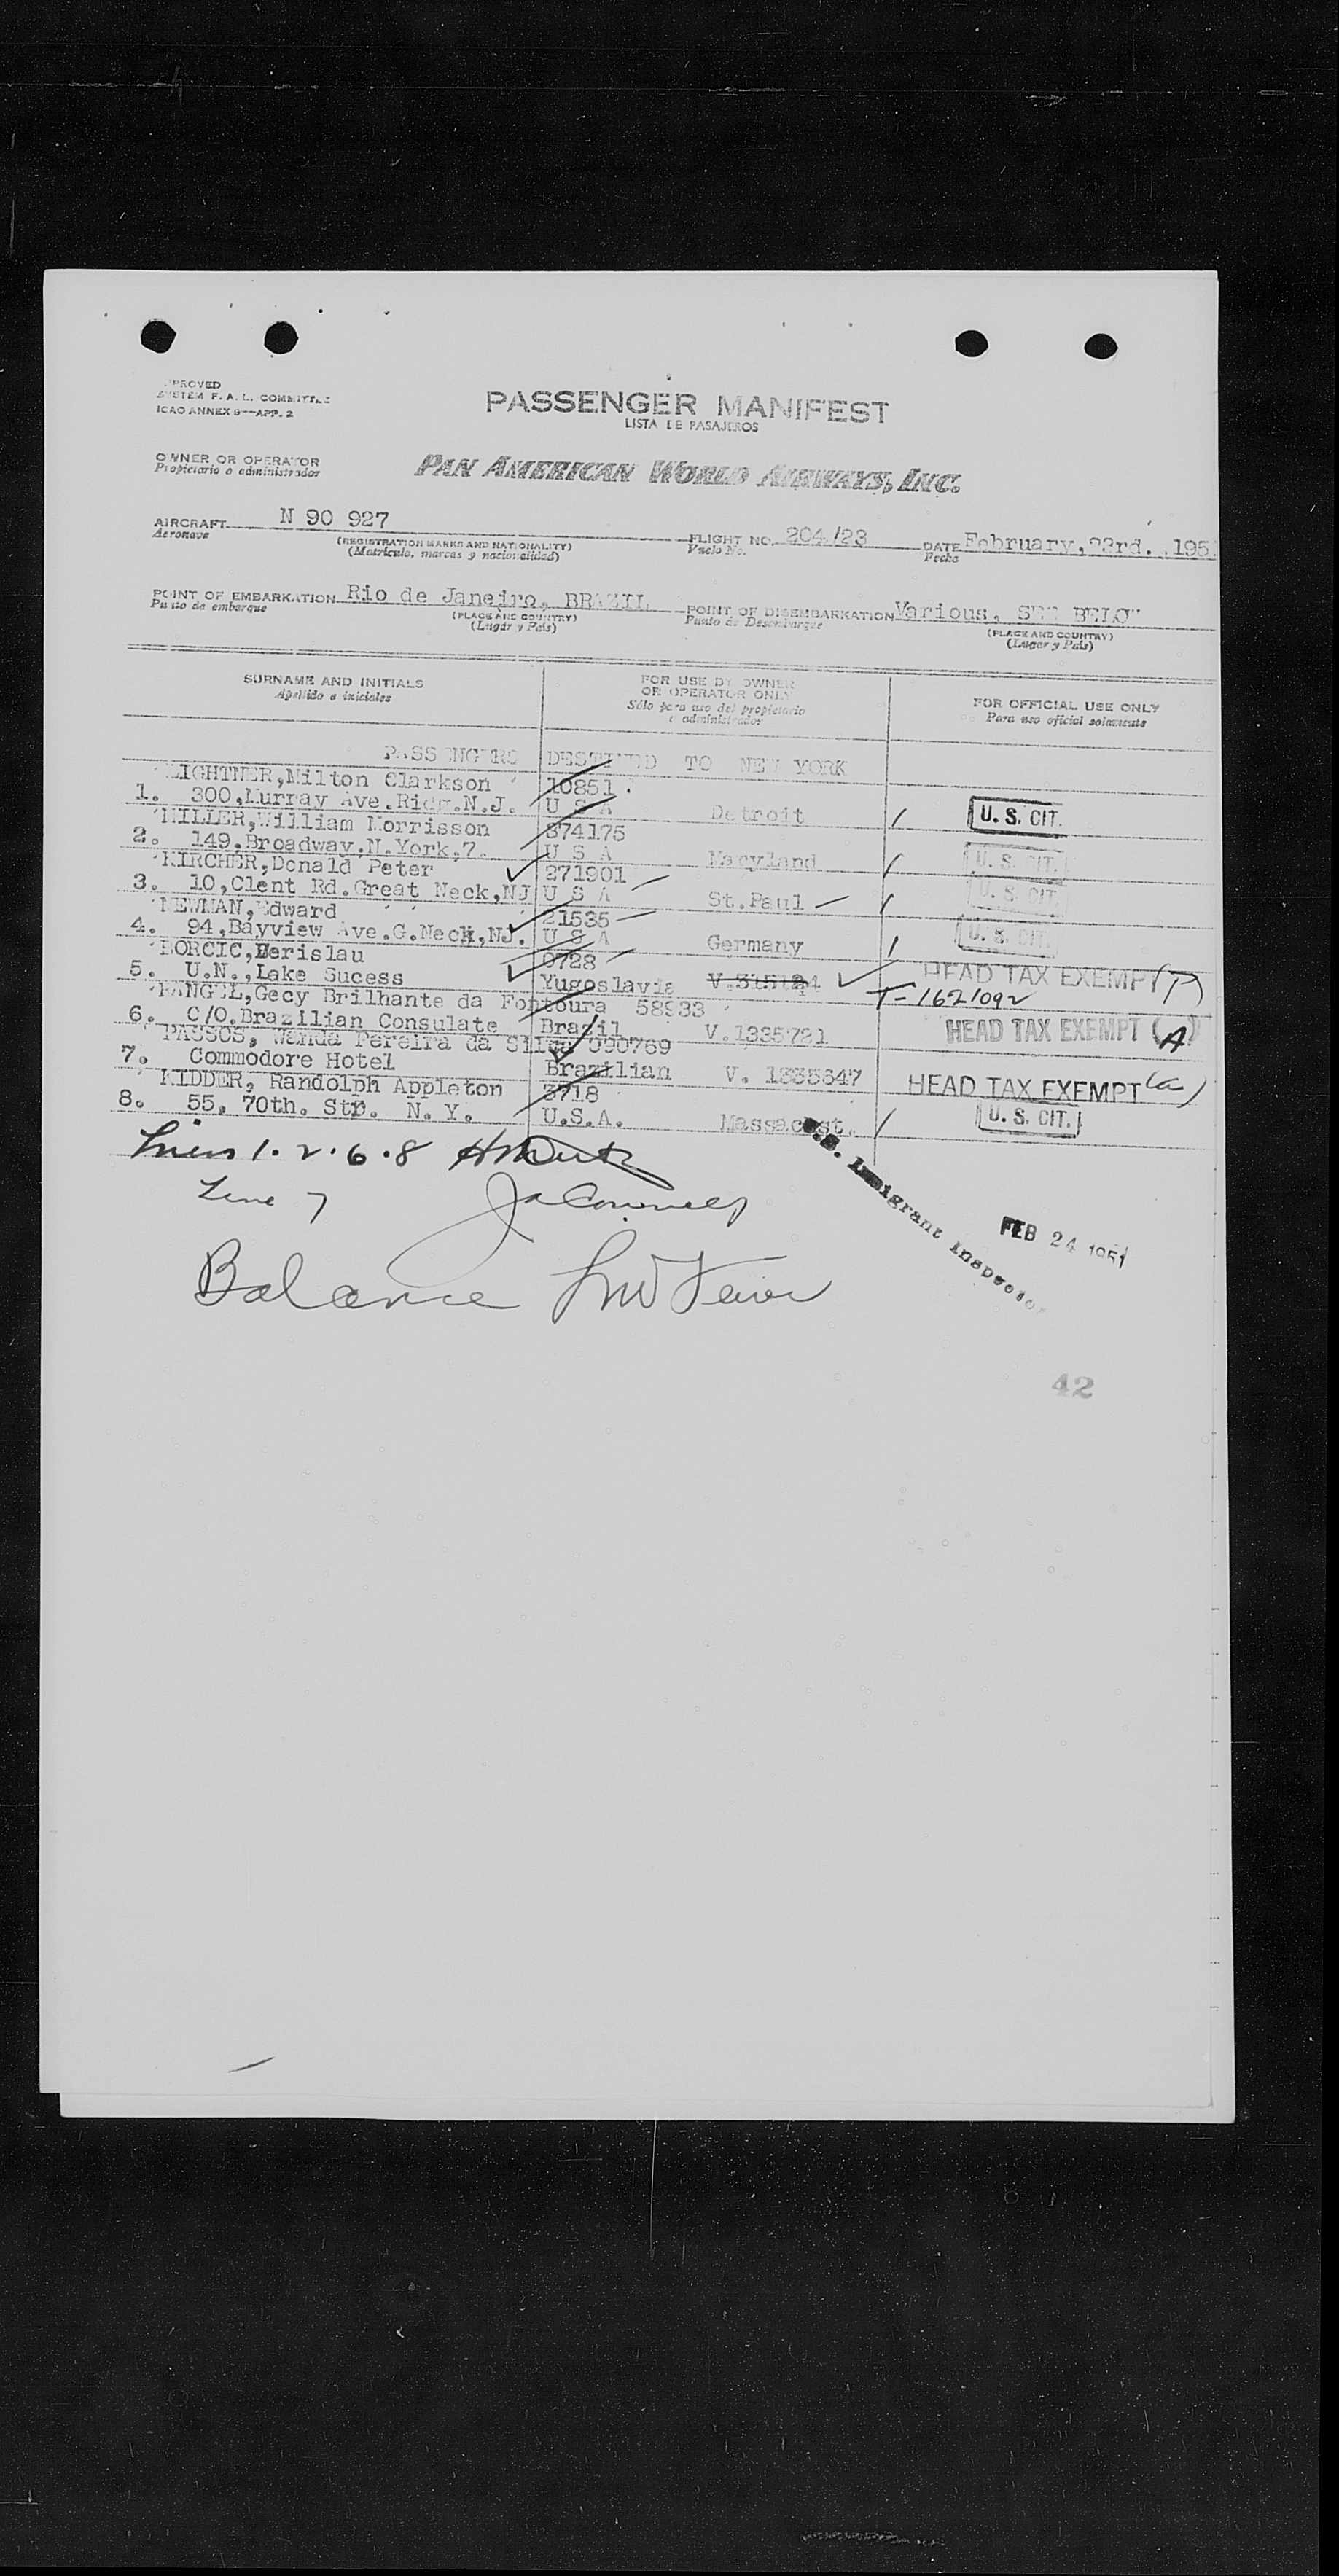 SYSTEM F. A. L. COMMITTEE
ICAO ANNEX 9—APP. 2
PASSENGER MANIFEST
LISTA DE PASAJEROS
OWNER OR OPERATOR
Propietario o administrador
PAN AMERICAN WORLD AIRWAYS, INC.
AIRCRAFT N 90 927 FLIGHT NO. 204/23 DATE February, 23rd. ,195
Aeronave (REGISTRATION MARKS AND NATIONALITY) Vuelo No. Fecha
(Matrículo, marcas y nacionalidad)
POINT OF EMBARKATION Rio de Janeiro, BRAZIL POINT OF DISEMBARKATION Various, SEE BELOW
Punto de embarque (PLACE AND COUNTRY) Punto de Desembarque (PLACE AND COUNTRY)
(Lugar y País) (Lugar y País)
SURNAME AND INITIALS FOR USE BY OWNER OR OPERATOR ONLY FOR OFFICIAL USE ONLY
Apellido e iniciales Sólo para uso del propietario o administrador Para uso oficial solamente
PASSENGERS DESTINED TO NEW YORK
LIGHTNER,Milton Clarkson 10851
1. 300,Murray Ave.Ridg.N.J. U S A Detroit U. S. CIT.
MILLER,William Morrisson 374175
2. 149,Broadway,N.York,7. U S A Maryland U. S. CIT.
KIRCHER,Donald Peter 271901
3. 10,Clent Rd.Great Neck,NJ U S A St.Paul U. S. CIT.
NEWMAN,Edward 21535
4. 94,Bayview Ave.G.Neck,NJ. U S A Germany U. S. CIT.
BORCIC,Berislau 0728
5. U.N.,Lake Sucess Yugoslavia HEAD TAX EXEMPT
T-1621092
RANGEL,Gecy Brilhante da Fontoura 58933
6. C/O.Brazilian Consulate Brazil V.1335721 HEAD TAX EXEMPT (A)
PASSOS, Wanda Pereira da Silva 090769
7. Commodore Hotel Brazilian V. 1335647 HEAD TAX EXEMPT (a)
KIDDER, Randolph Appleton 3718
8. 55, 70th. Str. N. Y. U.S.A. Massacust. U. S. CIT.
Lines 1.2.6.8
Line 7
Balance
U.S. Immigrant Inspector
FEB 24 1951
42